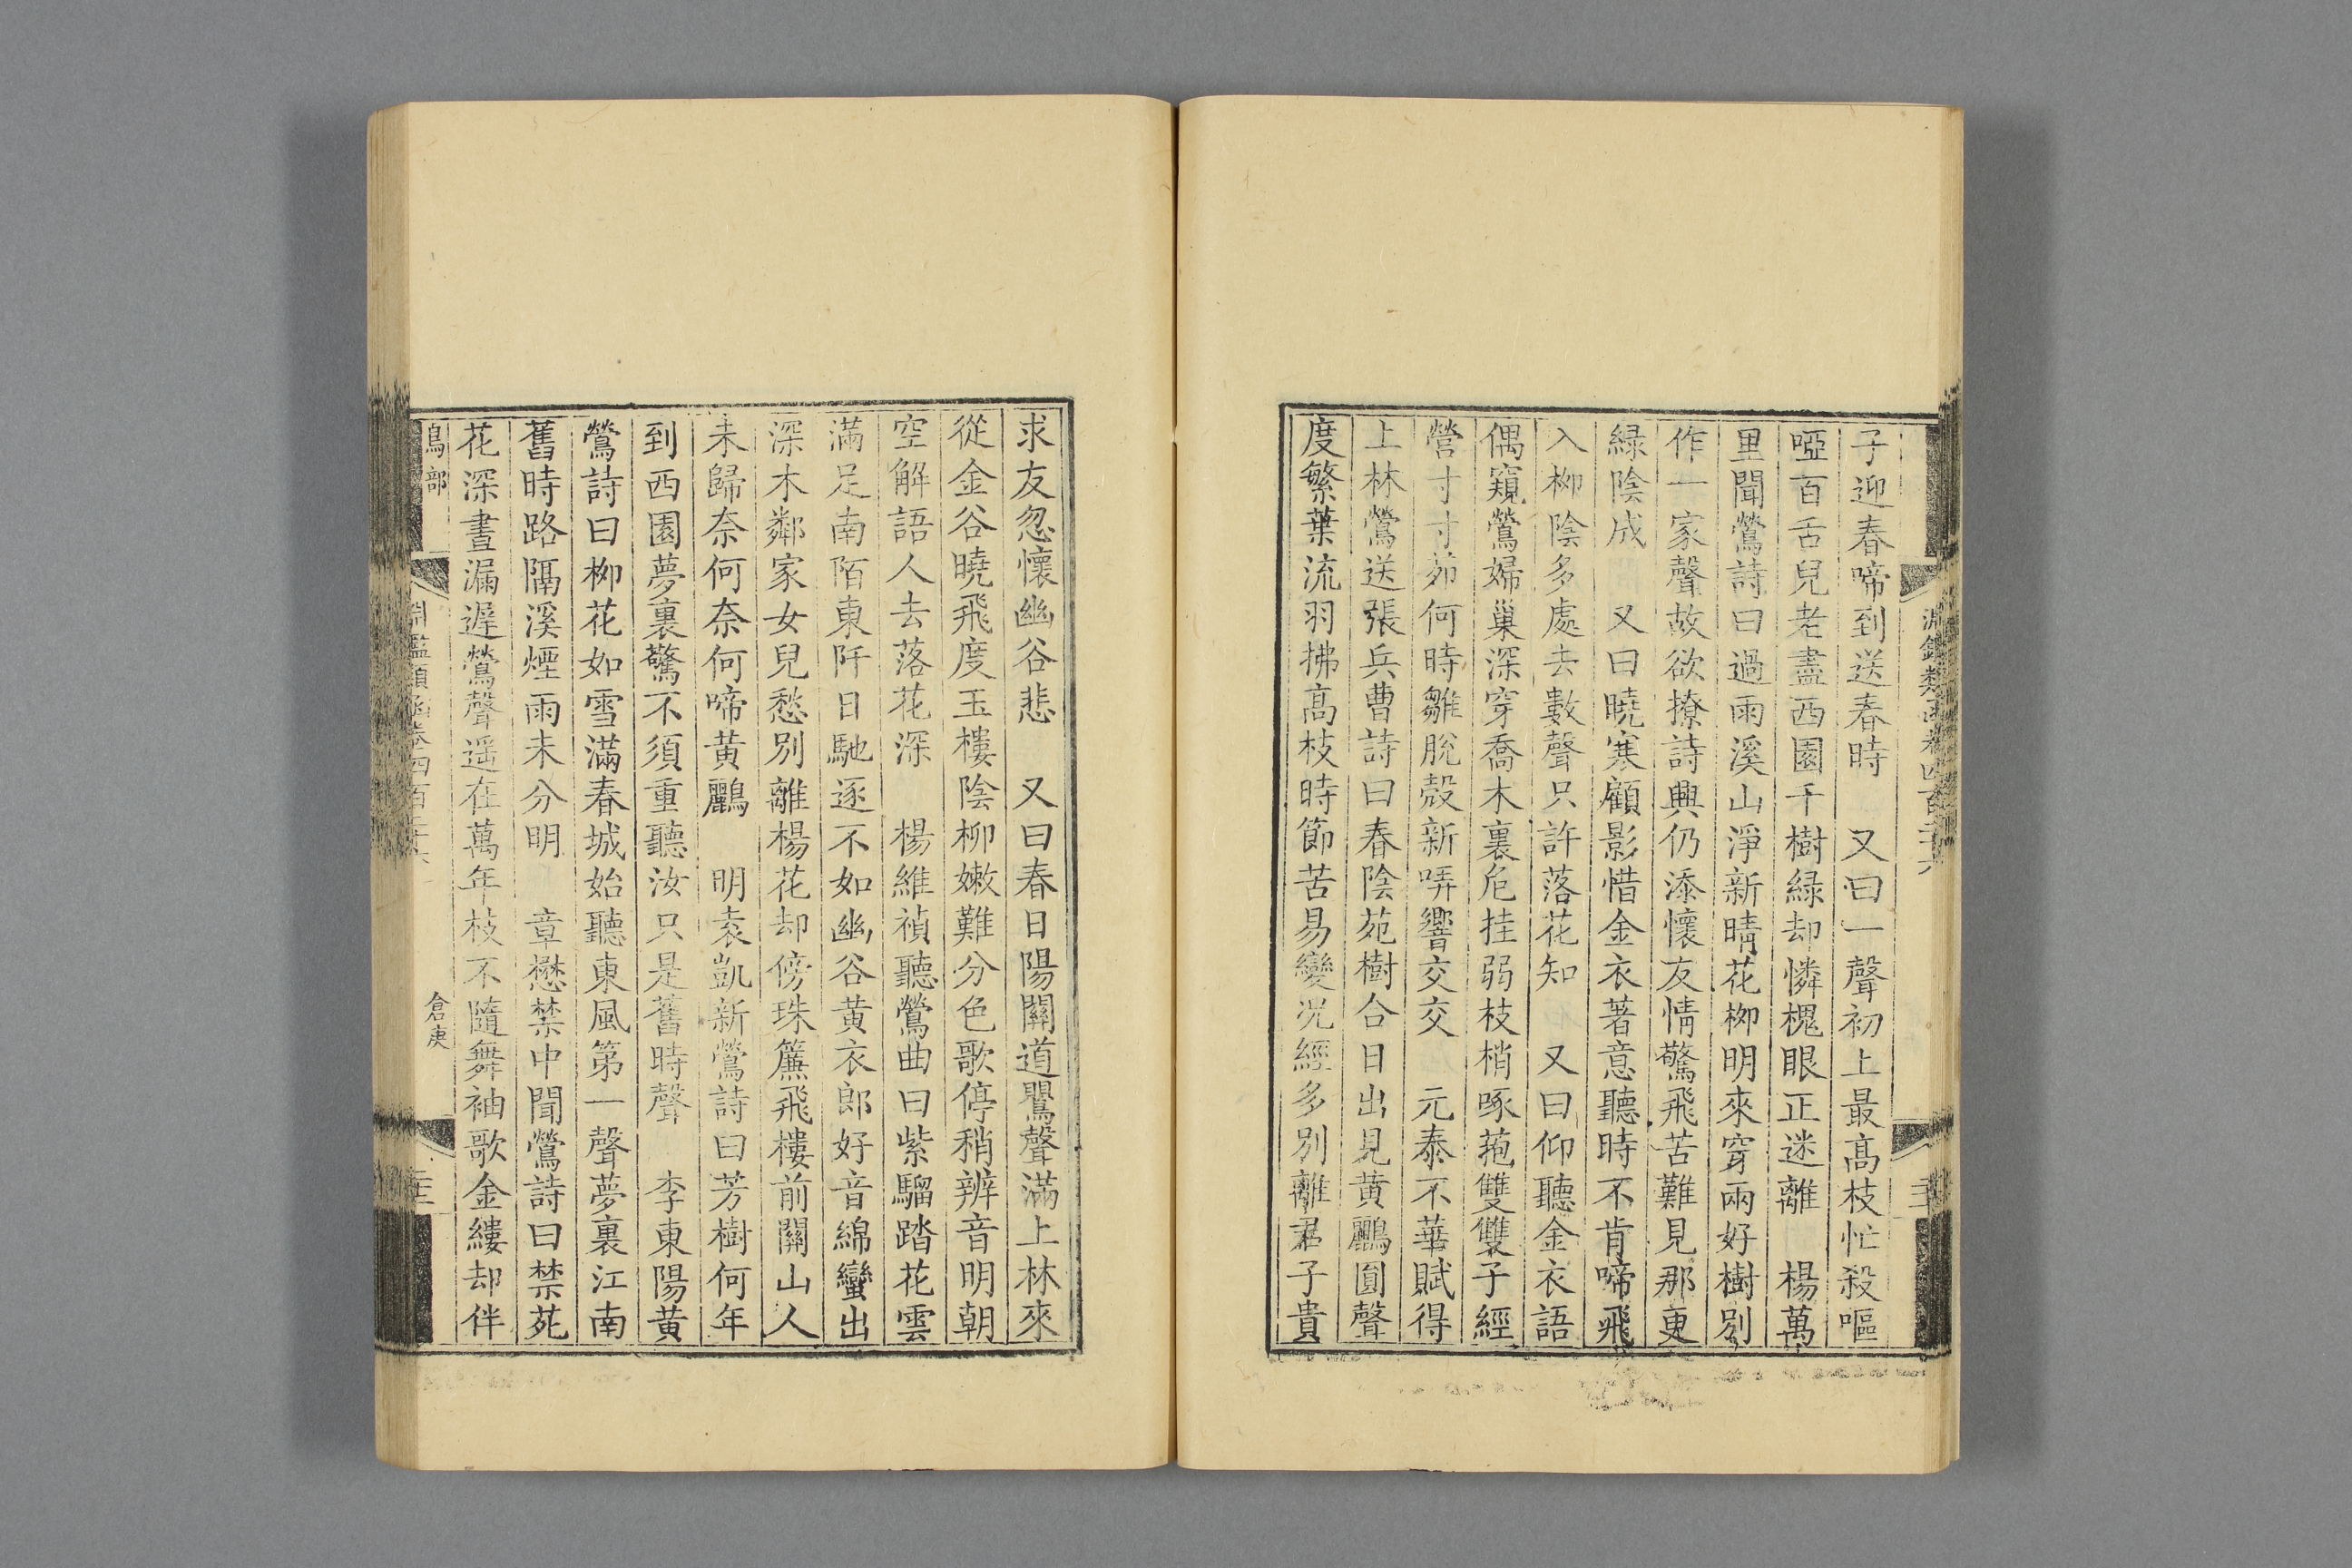 子迎春啼到送春時　又曰一聲初上最高枝忙殺嘔
啞百舌兒老盡西園千樹綠却憐槐眼正迷離　楊萬
里聞鶯詩曰過雨溪山淨新晴花栁明來穿兩好樹別
作一家聲故欲撩詩興仍添懷友情驚飛苦難見那更
綠陰成　又曰曉寒顧影惜金衣著意聽時不肯啼飛
入栁陰多處去數聲只許落花知　又曰仰聽金衣語
偶窺鶯婦巢深穿喬木裏危挂弱枝梢啄菢雙雙子經
營寸寸茆何時雛脫殼新哢響交交　元泰不華賦得
上林鶯送張兵曹詩曰春陰苑樹合日出見黃鸝圓聲
度繁葉流羽拂高枝時節苦易變況經多別離君子貴
求友忽懷幽谷悲　又曰春日陽關道鸎聲滿上林來
從金谷曉飛度玉樓陰柳嫩難分色歌停稍辨音明朝
空解語人去落花深　楊維禎聽鶯曲曰紫騮踏花雲
滿足南陌東阡日馳逐不如幽谷黃衣郎好音綿蠻出
深木鄰家女兒愁別離楊花却傍珠簾飛樓前關山人
未歸奈何奈何啼黃鸝　明袁凱新鶯詩曰芳樹何年
到西園夢裏驚不須重聽汝只是舊時聲　李東陽黃
鶯詩曰栁花如雪滿春城始聽東風第一聲夢裏江南
舊時路隔溪煙雨未分明　章懋禁中聞鶯詩曰禁苑
花深晝漏遲鶯聲遥在萬年枝不隨舞袖歌金縷却伴
鳥部　淵鑑類函卷四百二十六　倉庚